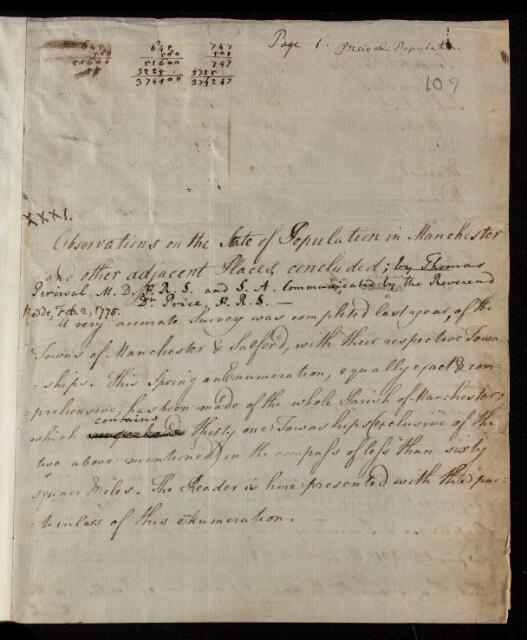 Page 1. Percival Populatn.
109
645 645 747
580 580 501
51600 51600 747
3225 3735
374100 374247
XXXI.
Observations on the State of Population in Manchester
and other adjacent Places, concluded; by Thomas
Percival M. D. F. R. S. and S. A. Communicated by the Reverend
Dr. Price, F. R. S. —
Redde, Feb. 2, 1775.
A very accurate Survey was completed last year, of the
Towns of Manchester & Salford, with their respective Town-
-ships. This Spring an Enumeration, equally exact & com-
-prehensive, has been made of the whole Parish of Manchester;
contains
which thirty one Townships (exclusive of the
two above mentioned) in the compass of less than sixty
square Miles. The Reader is here presented with the par-
-ticulars of this enumeration.